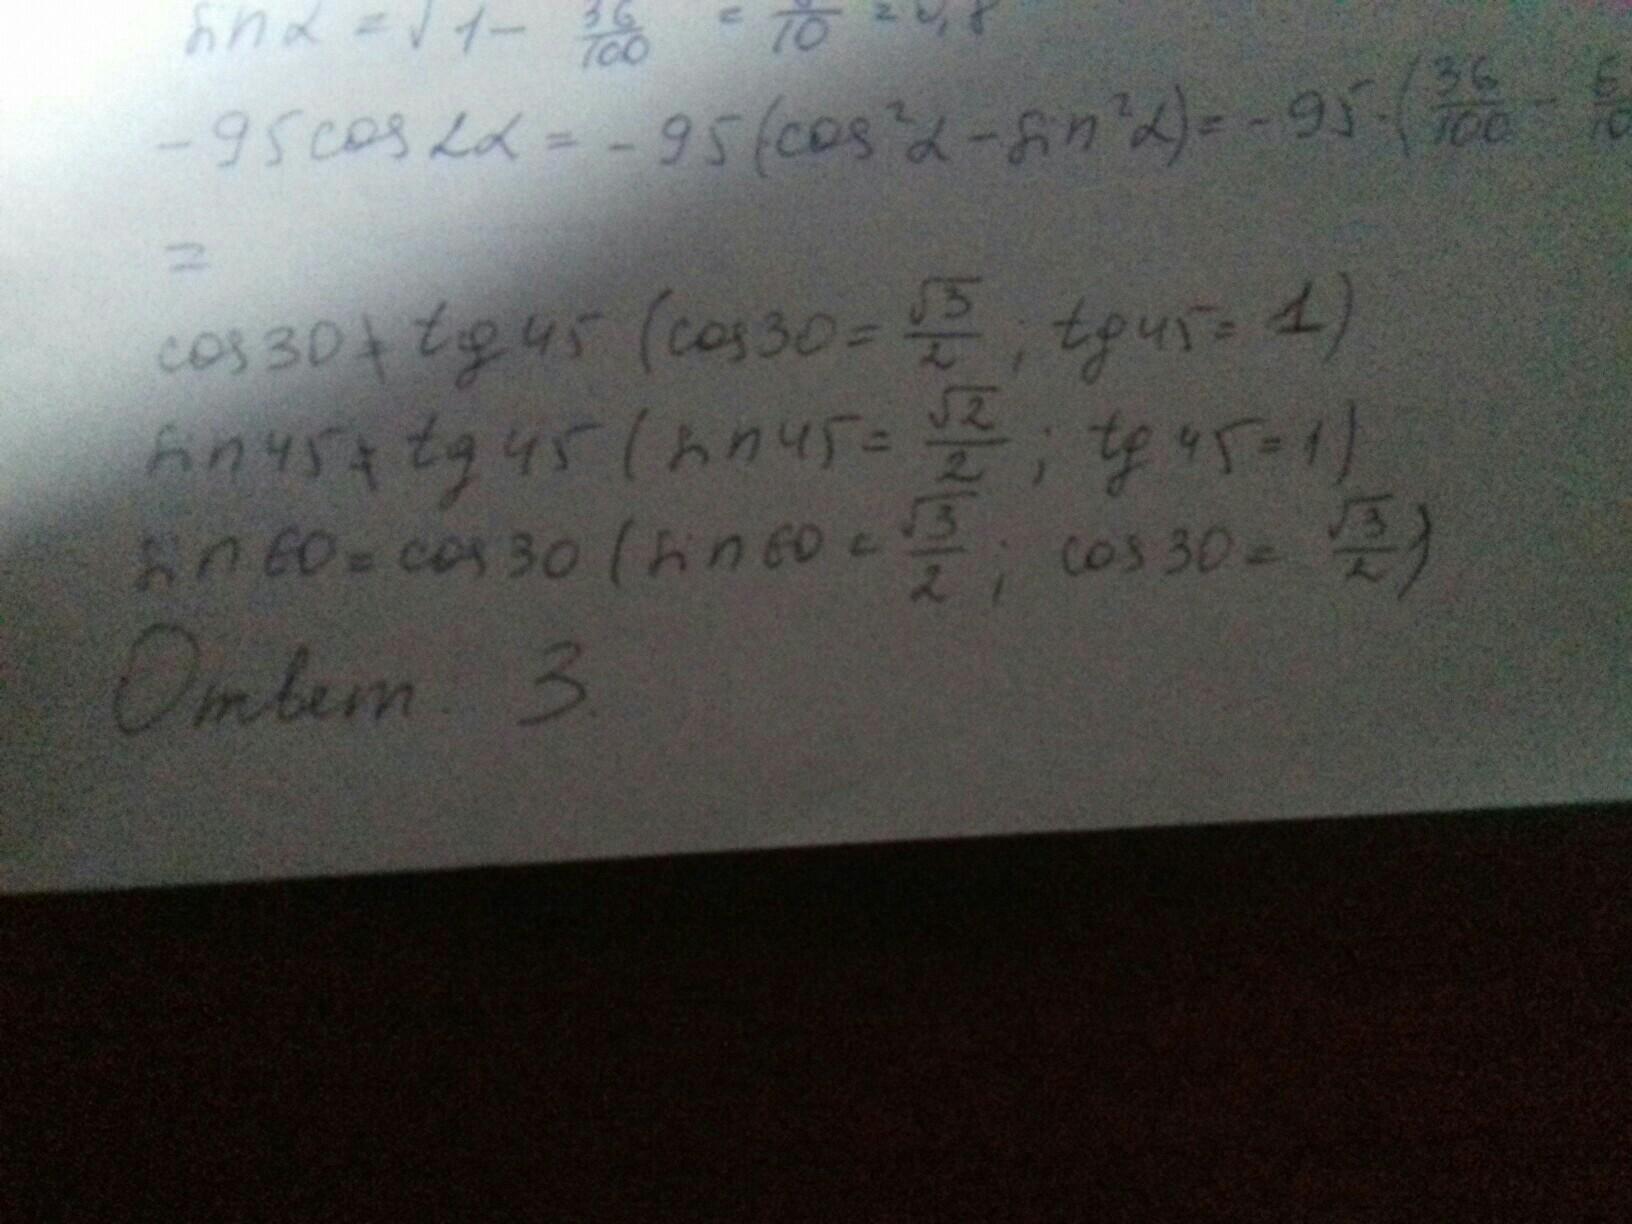 sin α = √1 - 36/100 = 8/10 = 0,8
-95 cos 2α = -95 (cos²α - sin²α) = -95 · (36/100 - 6
=
cos 30 ≠ tg 45 (cos 30 = √3/2 ; tg 45 = 1)
sin 45 ≠ tg 45 (sin 45 = √2/2 ; tg 45 = 1)
sin 60 = cos 30 (sin 60 = √3/2 ; cos 30 = √3/2)
Ответ. 3.